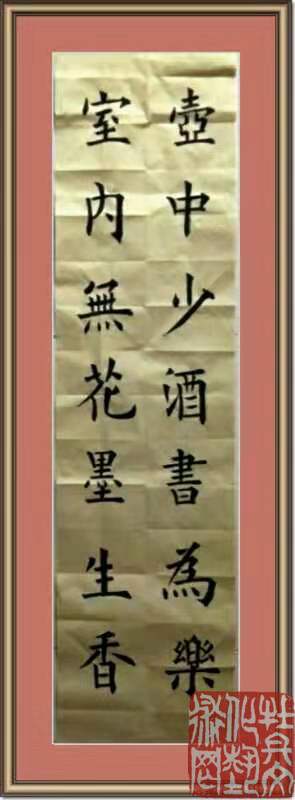 壺中少酒書為樂
室内無花墨生香